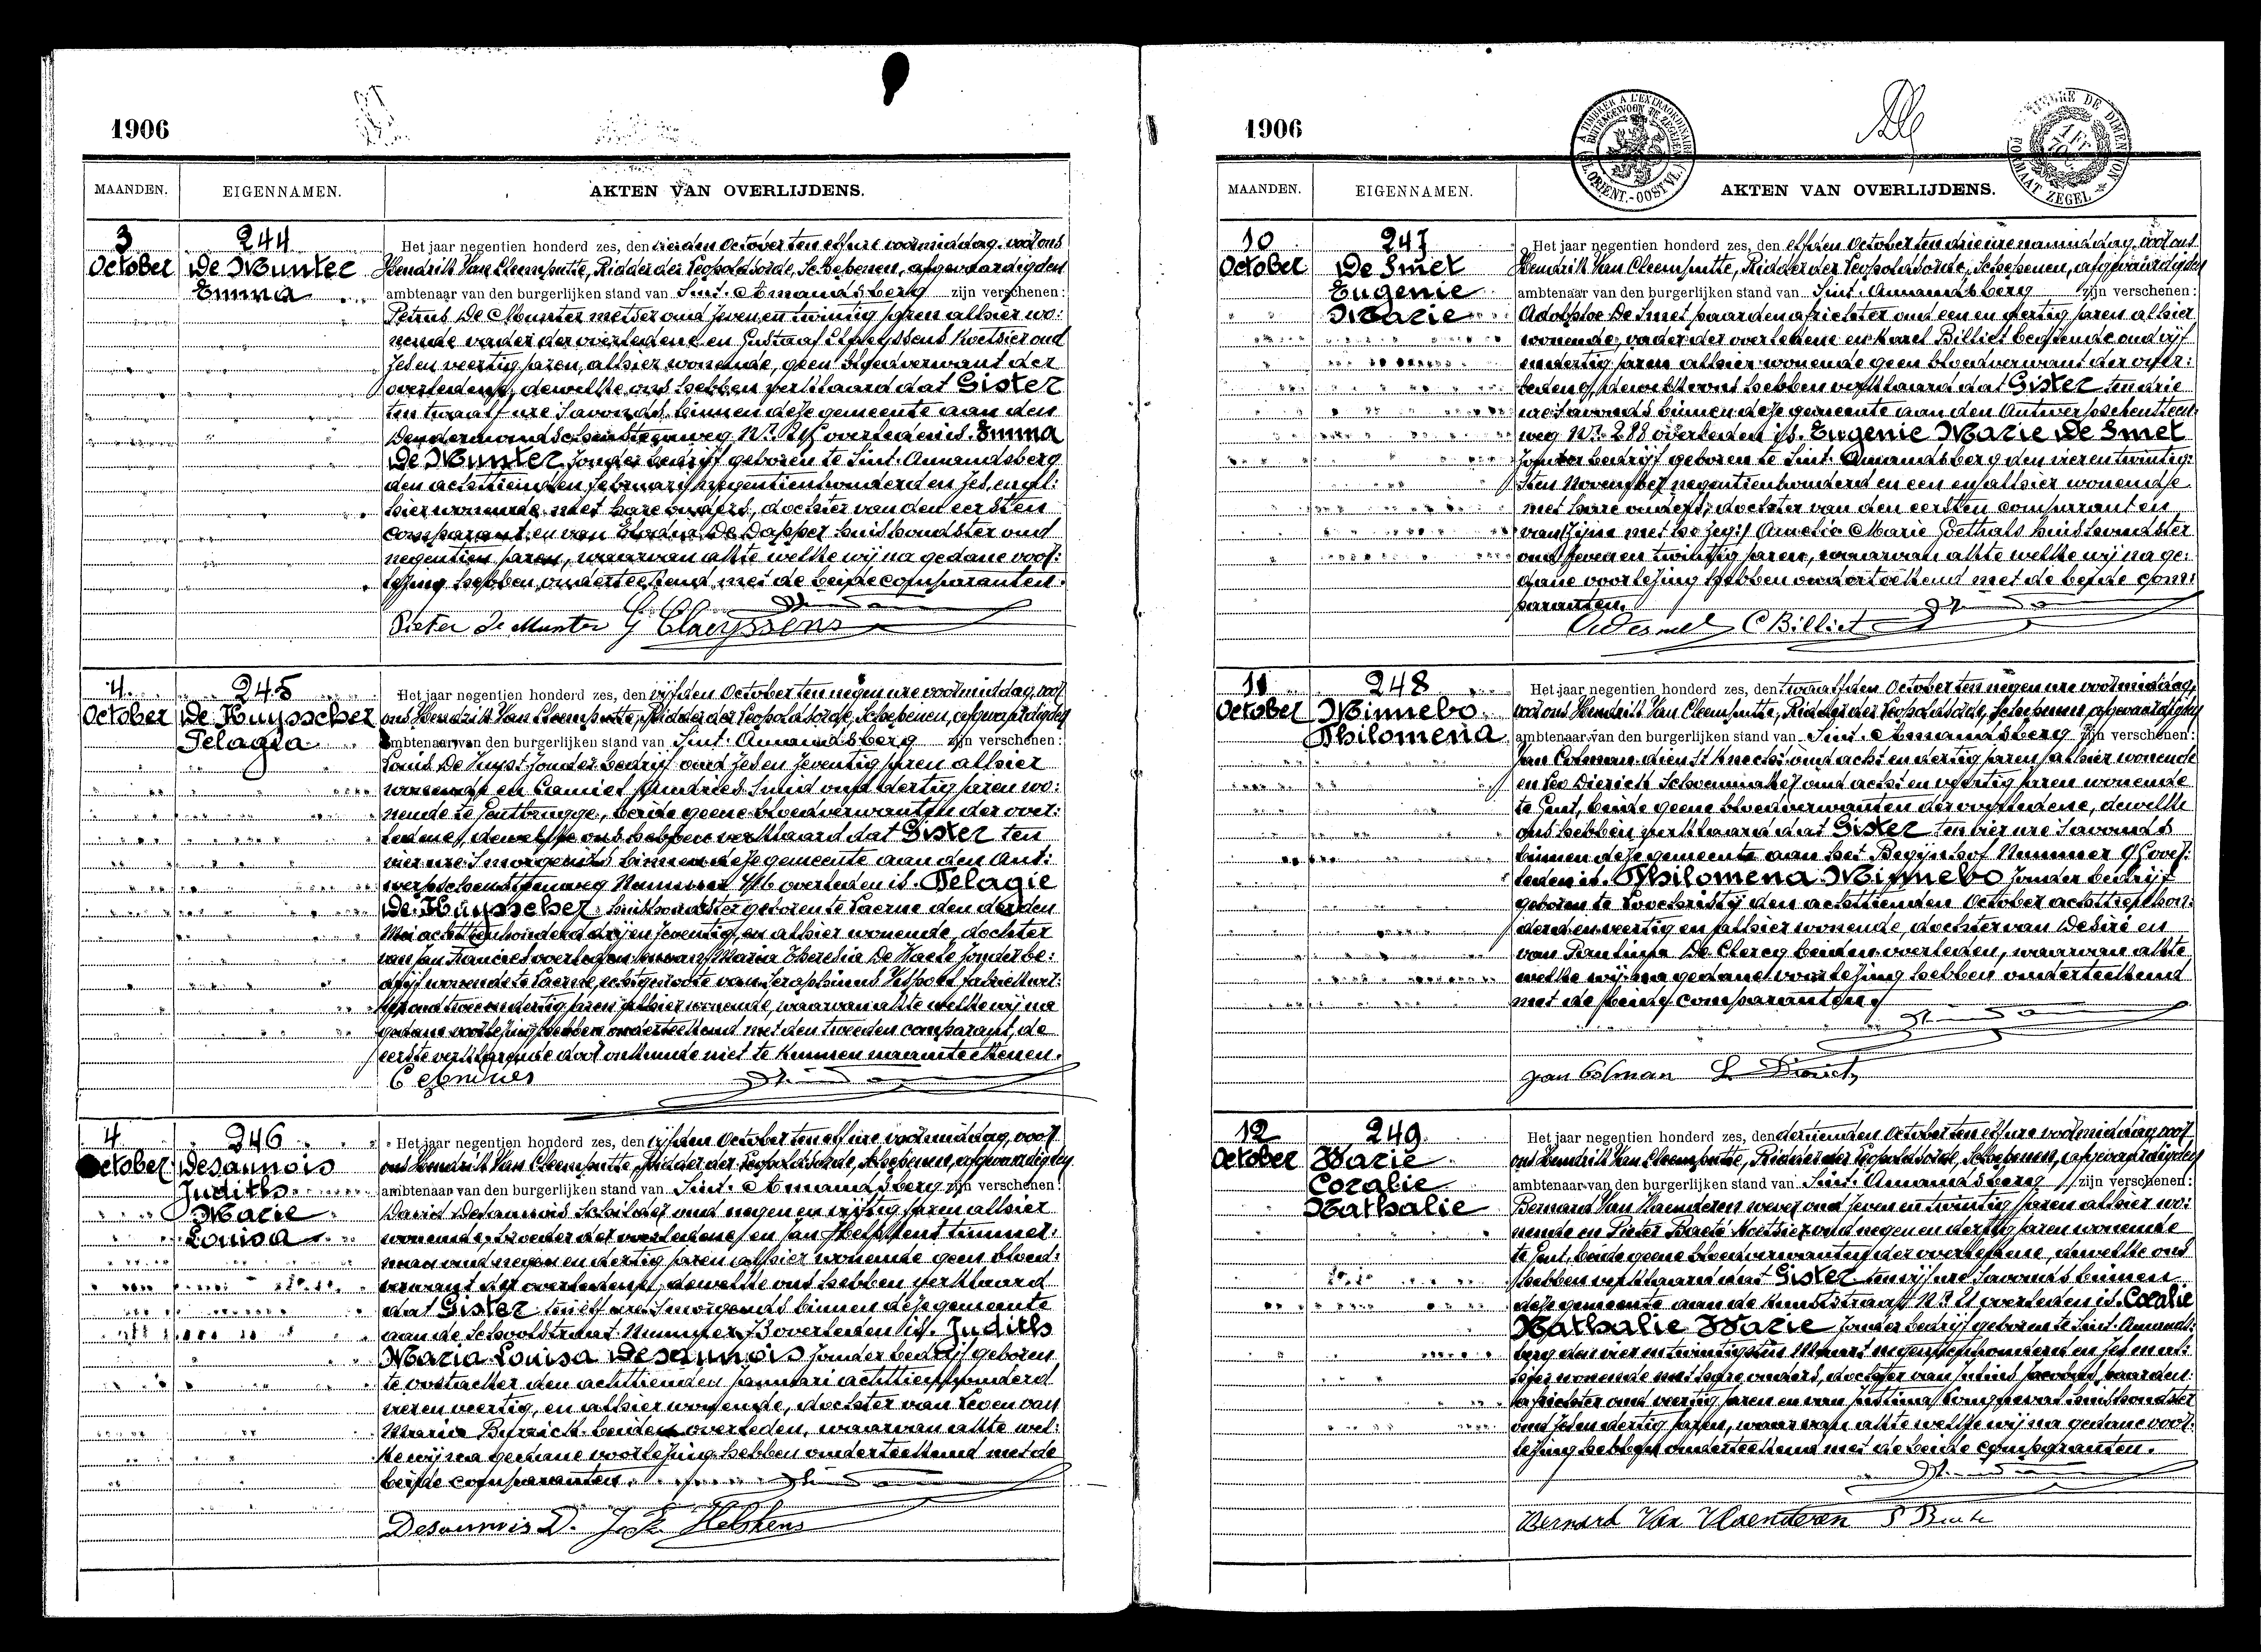 1906
MAANDEN. EIGENNAMEN. AKTEN VAN OVERLIJDENS.
3 October
244
De Munter
Emma
Het jaar negentien honderd zes, den vierden October ten elf ure voormiddag, voor ons
Hendrik Van Cleemputte, Ridder der Leopoldsorde, Schepenen, afgevaardigden
ambtenaar van den burgerlijken stand van Sint-Amandsberg zijn verschenen:
Petrus De Munter metser oud zeven en twintig jaren alhier wo:
nende vader der overledene en Gustraaf Claeyssens Koetsier oud
zes en veertig jaren, alhier wonende, geen bloedverwant der
overledene, dewelke ons hebben verklaard dat Gister
ten twaalf ure s'avonds binnen deze gemeente aan den
Dendermondschensteenweg Nr. overleden is. Emma
De Munter zonder bedrijf geboren te Sint-Amandsberg
den achttienden february negentienhonderd en zes, en al:
hier wonende met hare ouders, dochter van den eersten
comparant en van Elodia De Dapper huishoudster oud
negentien jaren, waarvan akte welke wij na gedane voor:
lezing hebben onderteekend met de beide comparanten.
Pieter De Munter G Claeyssens
4 October
245
De Kuysscher
Pelagia
Het jaar negentien honderd zes, den vijfden October ten negen ure voormiddag, voor
ons Hendrik Van Cleemputte, Ridder der Leopoldsorde, Schepenen, afgevaardigden
ambtenaar van den burgerlijken stand van Sint-Amandsberg zijn verschenen:
Louis De Kuyst zonder bedrijf oud zes en zeventig jaren alhier
wonende en Camiel Andries Smid oud dertig jaren wo:
nende te Gentbrugge, beide geene bloedverwanten der over:
ledene, dewelke ons hebben verklaard dat Gister ten
vier ure s'morgends binnen deze gemeente aan den Ant:
werpschensteenweg Nummer overleden is. Pelagie
De Kuysscher huishoudster geboren te Laerne den derden
Mei achttienhonderd drij en zeventig, en alhier wonende, dochter
van Jan Francies overleden en van Maria Theresia De Maele zonder be:
drijf wonende te Laerne, echtgenoote van Seraphinus fabriekwer:
ker oud twee en dertig jaren alhier wonende, waarvan akte welke wij na
gedane voorlezing hebben onderteekend met den tweeden comparant, de
eerste verklarende door onkunde niet te kunnen naamteekenen.
C Andries
4 October
246
Desaunois
Judith
Marie
Louisa
Het jaar negentien honderd zes, den vijfden October ten elf ure voormiddag, voor
ons Hendrik Van Cleemputte, Ridder der Leopoldsorde, Schepenen, afgevaardigden
ambtenaar van den burgerlijken stand van Sint-Amandsberg zijn verschenen:
David Desaunois Schilder oud negen en vijftig jaren alhier
wonende, broeder der overledene en Jan Helskens timmer:
man oud negen en dertig jaren alhier wonende geen bloed:
verwant der overledene, dewelke ons hebben verklaard
dat Gister ten elf ure s'morgends binnen deze gemeente
aan de Schoolstraat Nummer overleden is. Judith
Maria Louisa Desaunois zonder bedrijf geboren
te oostacker den achttienden januari achttienhonderd
vier en veertig, en alhier wonende, dochter van Leo en van
Maria beiden overleden, waarvan akte wel:
ke wij na gedane voorlezing hebben onderteekend met de
beide comparanten.
Desaunois D. J. Helskens
1906
A TIMBRER A L'EXTRAORDINAIRE
BUITENGEWOON TE ZEGELEN
FL. ORIENT.-OOST VL.
TIMBRE DE DIMENSION
FORMAAT ZEGEL
MAANDEN. EIGENNAMEN. AKTEN VAN OVERLIJDENS.
10 October
247
De Smet
Eugenie
Marie
Het jaar negentien honderd zes, den elfden October ten drie ure namiddag, voor ons
Hendrik Van Cleemputte, Ridder der Leopoldsorde, Schepenen, afgevaardigden
ambtenaar van den burgerlijken stand van Sint-Amandsberg zijn verschenen:
Adolphe De Smet paardenafrichter oud een en dertig jaren alhier
wonende, vader der overledene en Karel Billiet bediende oud vijf
en dertig jaren alhier wonende geen bloedverwant der over:
ledene, dewelke ons hebben verklaard dat Gister ten drie
ure s'avonds binnen deze gemeente aan den Antwerpschensteen:
weg Nr. 288 overleden is. Eugenie Marie De Smet
zonder bedrijf geboren te Sint-Amandsberg den vier en twintig:
sten November negentienhonderd en een en alhier wonende
met hare ouders, dochter van den eersten comparant en
van zijne Amelia Marie Goethals huishoudster
oud zeven en twintig jaren, waarvan akte welke wij na ge:
dane voorlezing hebben onderteekend met de beide com:
paranten.
A Desmet C Billiet
11 October
248
Minnebo
Philomena
Het jaar negentien honderd zes, den twaalfden October ten negen ure voormiddag,
voor ons Hendrik Van Cleemputte, Ridder der Leopoldsorde, Schepenen, afgevaardigden
ambtenaar van den burgerlijken stand van Sint-Amandsberg zijn verschenen:
Jan Colman dienstknecht oud acht en dertig jaren alhier wonende
en Leo Dierick Schoenmaker oud acht en veertig jaren wonende
te Gent, beide geene bloedverwanten der overledene, dewelke
ons hebben verklaard dat Gister ten vier ure s'avonds
binnen deze gemeente aan het Begijnhof Nummer over:
leden is. Philomena Minnebo zonder bedrijf
geboren te Loochristij den achttienden October achttienhon:
derd en veertig en alhier wonende, dochter van Desiré en
van De Clercq beiden overleden, waarvan akte
welke wij na gedane voorlezing hebben onderteekend
met de beide comparanten.
Jan Colman L Dierick
12 October
249
Warie
Coralie
Nathalie
Het jaar negentien honderd zes, den dertienden October ten elf ure voormiddag, voor
ons Hendrik Van Cleemputte, Ridder der Leopoldsorde, Schepenen, afgevaardigden
ambtenaar van den burgerlijken stand van Sint-Amandsberg zijn verschenen:
Bernard Van Vlaenderen wever oud zeven en twintig jaren alhier wo:
nende en Pieter Baeté Koetsier oud negen en dertig jaren wonende
te Gent, beide geene bloedverwanten der overledene, dewelke ons
hebben verklaard dat Gister ten vijf ure s'avonds binnen
deze gemeente aan de Kunststraat Nr. 21 overleden is. Coralie
Nathalie Warie zonder bedrijf geboren te Sint-Amands:
berg den vier en twintigsten Maart negentienhonderd en zes en al:
hier wonende met hare ouders, dochter van paarden:
africhter oud veertig jaren en van huishoudster
oud zes en dertig jaren, waarvan akte welke wij na gedane voor:
lezing hebben onderteekend met de beide comparanten.
Bernard Van Vlaenderen P Baete